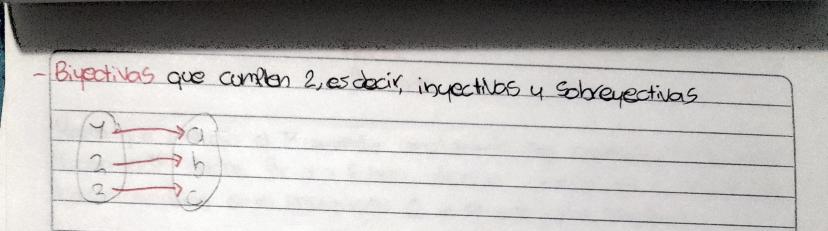 - Biyectivas que cumplen 2, es decir, inyectivas y sobreyectivas
1 → a
2 → b
2 → c